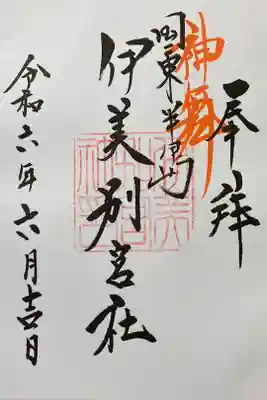 奉拝
神舞
国東半島
伊美別宮社
令和六年六月吉日